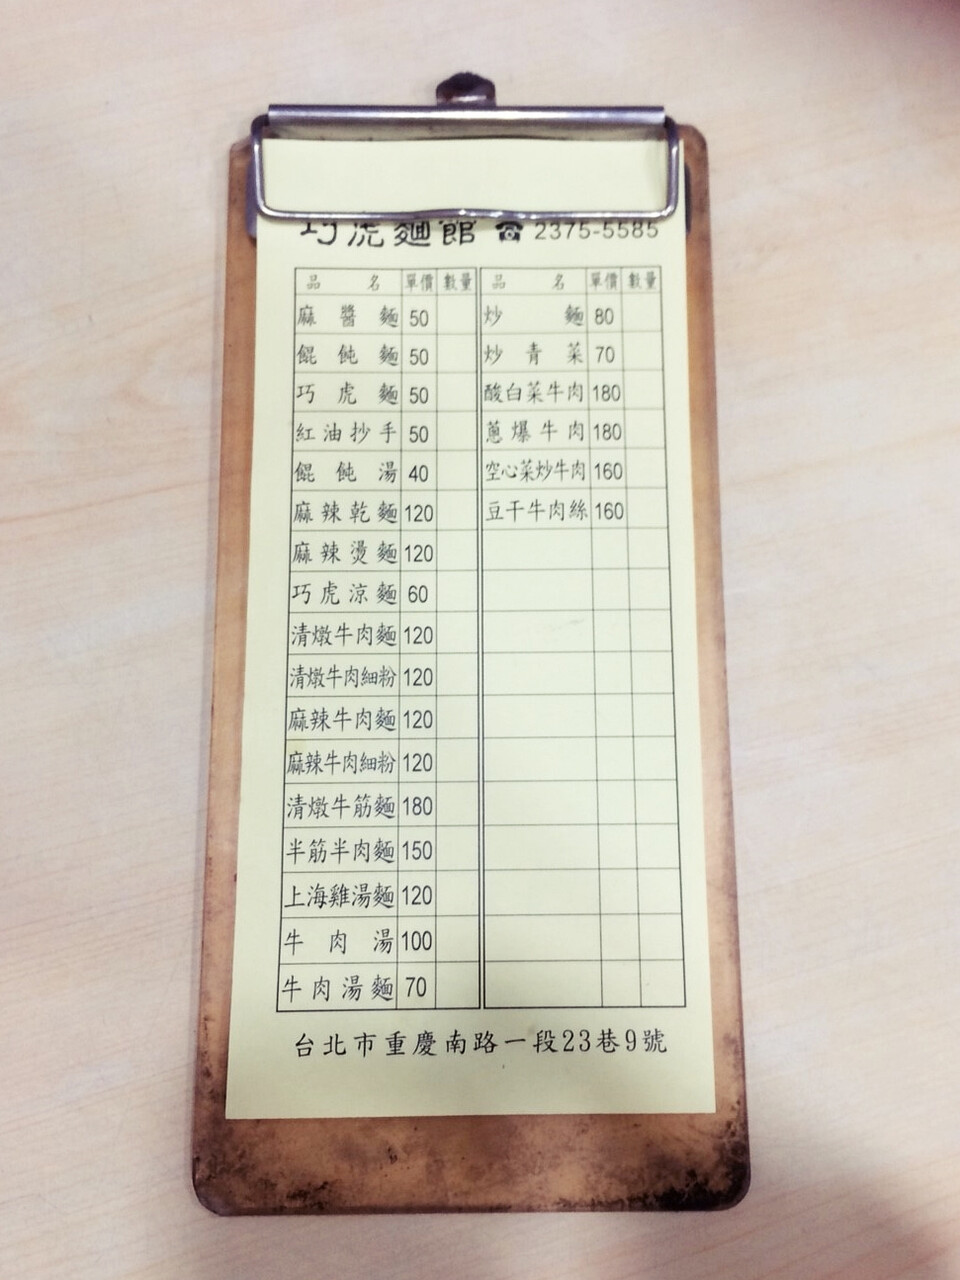 巧虎麵館 ☎ 2375-5585
品名 單價 數量 品名 單價 數量
麻醬麵 50 炒麵 80
餛飩麵 50 炒青菜 70
巧虎麵 50 酸白菜牛肉 180
紅油抄手 50 蔥爆牛肉 180
餛飩湯 40 空心菜炒牛肉 160
麻辣乾麵 120 豆干牛肉絲 160
麻辣燙麵 120
巧虎涼麵 60
清燉牛肉麵 120
清燉牛肉細粉 120
麻辣牛肉麵 120
麻辣牛肉細粉 120
清燉牛筋麵 180
半筋半肉麵 150
上海雞湯麵 120
牛肉湯 100
牛肉湯麵 70
台北市重慶南路一段23巷9號